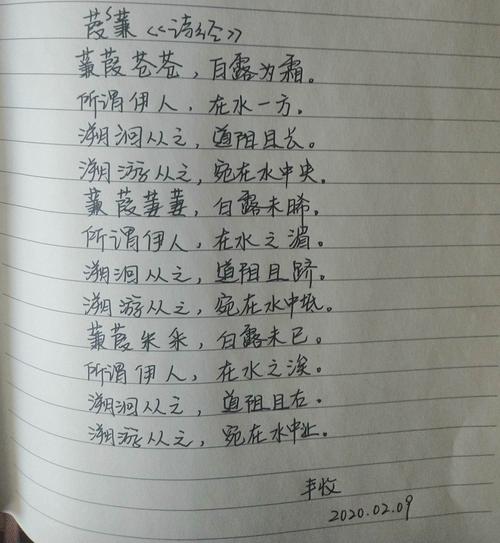 葭蒹《诗经》
蒹葭苍苍，白露为霜。
所谓伊人，在水一方。
溯洄从之，道阻且长。
溯游从之，宛在水中央。
蒹葭萋萋，白露未晞。
所谓伊人，在水之湄。
溯洄从之，道阻且跻。
溯游从之，宛在水中坻。
蒹葭采采，白露未已。
所谓伊人，在水之涘。
溯洄从之，道阻且右。
溯游从之，宛在水中沚。
丰收
2020.02.09